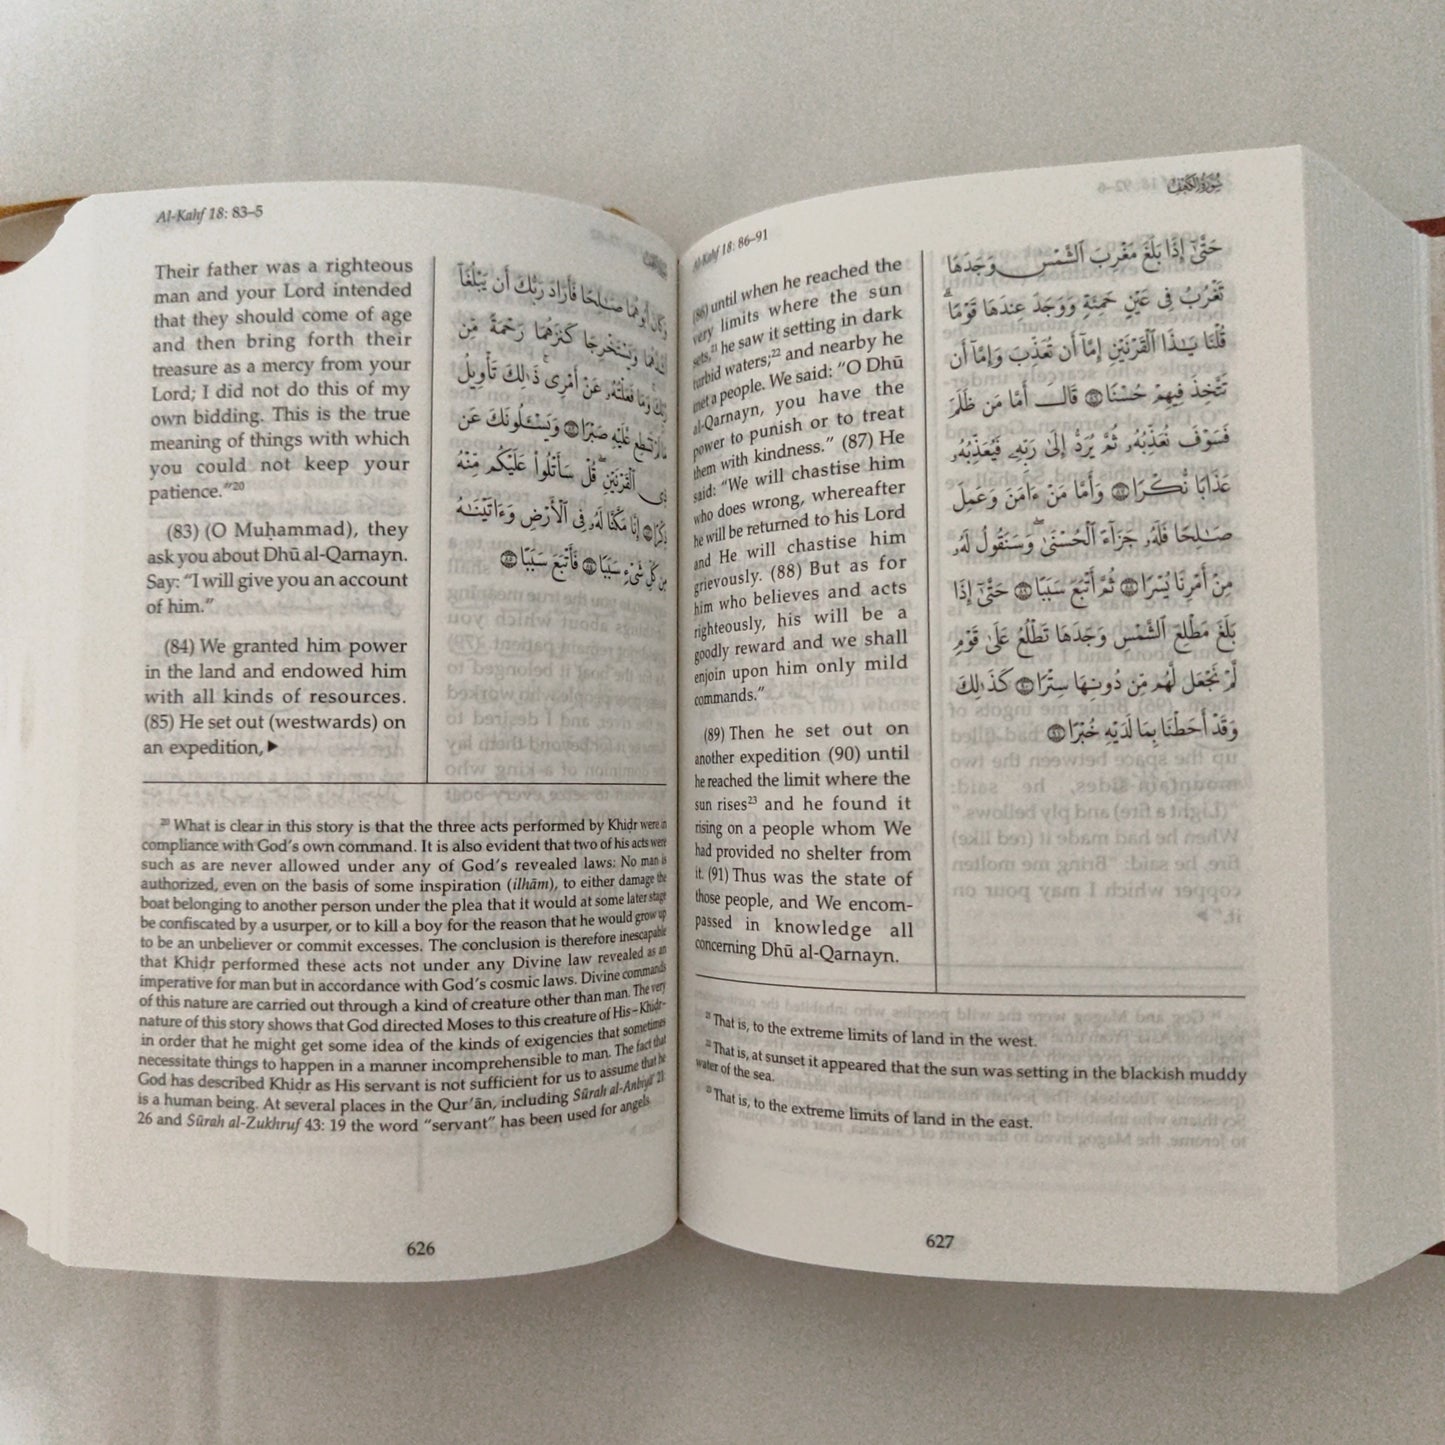 Al-Kahf 18: 83–5
Their father was a righteous
man and your Lord intended
that they should come of age
and then bring forth their
treasure as a mercy from your
Lord; I did not do this of my
own bidding. This is the true
meaning of things with which
you could not keep your
patience.”20
(83) (O Muḥammad), they
ask you about Dhū al-Qarnayn.
Say: “I will give you an account
of him.”
(84) We granted him power
in the land and endowed him
with all kinds of resources.
(85) He set out (westwards) on
an expedition,▶
صَـٰلِحًا فَأَرَادَ رَبُّكَ أَن يَبْلُغَآ
وَيَسْتَخْرِجَا كَنزَهُمَا رَحْمَةً مِّن
وَمَا فَعَلْتُهُۥ عَنْ أَمْرِى ۚ ذَٰلِكَ تَأْوِيلُ
عَّلَيْهِ صَبْرًا ۝٨٢ وَيَسْـَٔلُونَكَ عَن
ٱلْقَرْنَيْنِ ۖ قُلْ سَأَتْلُوا۟ عَلَيْكُم مِّنْهُ
ذِكْرًا ۝٨٣ إِنَّا مَكَّنَّا لَهُۥ فِى ٱلْأَرْضِ وَءَاتَيْنَـٰهُ
مِن كُلِّ شَىْءٍ سَبَبًا ۝٨٤ فَأَتْبَعَ سَبَبًا ۝٨٥
20 What is clear in this story is that the three acts performed by Khiḍr were in
compliance with God’s own command. It is also evident that two of his acts were
such as are never allowed under any of God’s revealed laws: No man is
authorized, even on the basis of some inspiration (ilhām), to either damage the
boat belonging to another person under the plea that it would at some later stage
be confiscated by a usurper, or to kill a boy for the reason that he would grow up
to be an unbeliever or commit excesses. The conclusion is therefore inescapable
that Khiḍr performed these acts not under any Divine law revealed as an
imperative for man but in accordance with God’s cosmic laws. Divine commands
of this nature are carried out through a kind of creature other than man. The very
nature of this story shows that God directed Moses to this creature of His – Khiḍr–
in order that he might get some idea of the kinds of exigencies that sometimes
necessitate things to happen in a manner incomprehensible to man. The fact that
God has described Khiḍr as His servant is not sufficient for us to assume that he
is a human being. At several places in the Qur’ān, including Sūrah al-Anbiyā’ 21:
26 and Sūrah al-Zukhruf 43: 19 the word “servant” has been used for angels.
626
Al-Kahf 18: 86–91
سُورَةُ الكَهْفِ
(86) until when he reached the
very limits where the sun
sets,21 he saw it setting in dark
turbid waters;22 and nearby he
met a people. We said: “O Dhū
al-Qarnayn, you have the
power to punish or to treat
them with kindness.” (87) He
said: “We will chastise him
who does wrong, whereafter
he will be returned to his Lord
and He will chastise him
grievously. (88) But as for
him who believes and acts
righteously, his will be a
goodly reward and we shall
enjoin upon him only mild
commands.”
(89) Then he set out on
another expedition (90) until
he reached the limit where the
sun rises23 and he found it
rising on a people whom We
had provided no shelter from
it. (91) Thus was the state of
those people, and We encom-
passed in knowledge all
concerning Dhū al-Qarnayn.
حَتَّىٰٓ إِذَا بَلَغَ مَغْرِبَ ٱلشَّمْسِ وَجَدَهَا
تَغْرُبُ فِى عَيْنٍ حَمِئَةٍ وَوَجَدَ عِندَهَا قَوْمًا ۗ
قُلْنَا يَـٰذَا ٱلْقَرْنَيْنِ إِمَّآ أَن تُعَذِّبَ وَإِمَّآ أَن
تَتَّخِذَ فِيهِمْ حُسْنًا ۝٨٦ قَالَ أَمَّا مَن ظَلَمَ
فَسَوْفَ نُعَذِّبُهُۥ ثُمَّ يُرَدُّ إِلَىٰ رَبِّهِۦ فَيُعَذِّبُهُۥ
عَذَابًا نُّكْرًا ۝٨٧ وَأَمَّا مَنْ ءَامَنَ وَعَمِلَ
صَـٰلِحًا فَلَهُۥ جَزَآءً ٱلْحُسْنَىٰ ۖ وَسَنَقُولُ لَهُۥ
مِنْ أَمْرِنَا يُسْرًا ۝٨٨ ثُمَّ أَتْبَعَ سَبَبًا ۝٨٩ حَتَّىٰٓ إِذَا
بَلَغَ مَطْلِعَ ٱلشَّمْسِ وَجَدَهَا تَطْلُعُ عَلَىٰ قَوْمٍ
لَّمْ نَجْعَل لَّهُم مِّن دُونِهَا سِتْرًا ۝٩٠ كَذَٰلِكَ
وَقَدْ أَحَطْنَا بِمَا لَدَيْهِ خُبْرًا ۝٩١
21 That is, to the extreme limits of land in the west.
22 That is, at sunset it appeared that the sun was setting in the blackish muddy
water of the sea.
23 That is, to the extreme limits of land in the east.
627